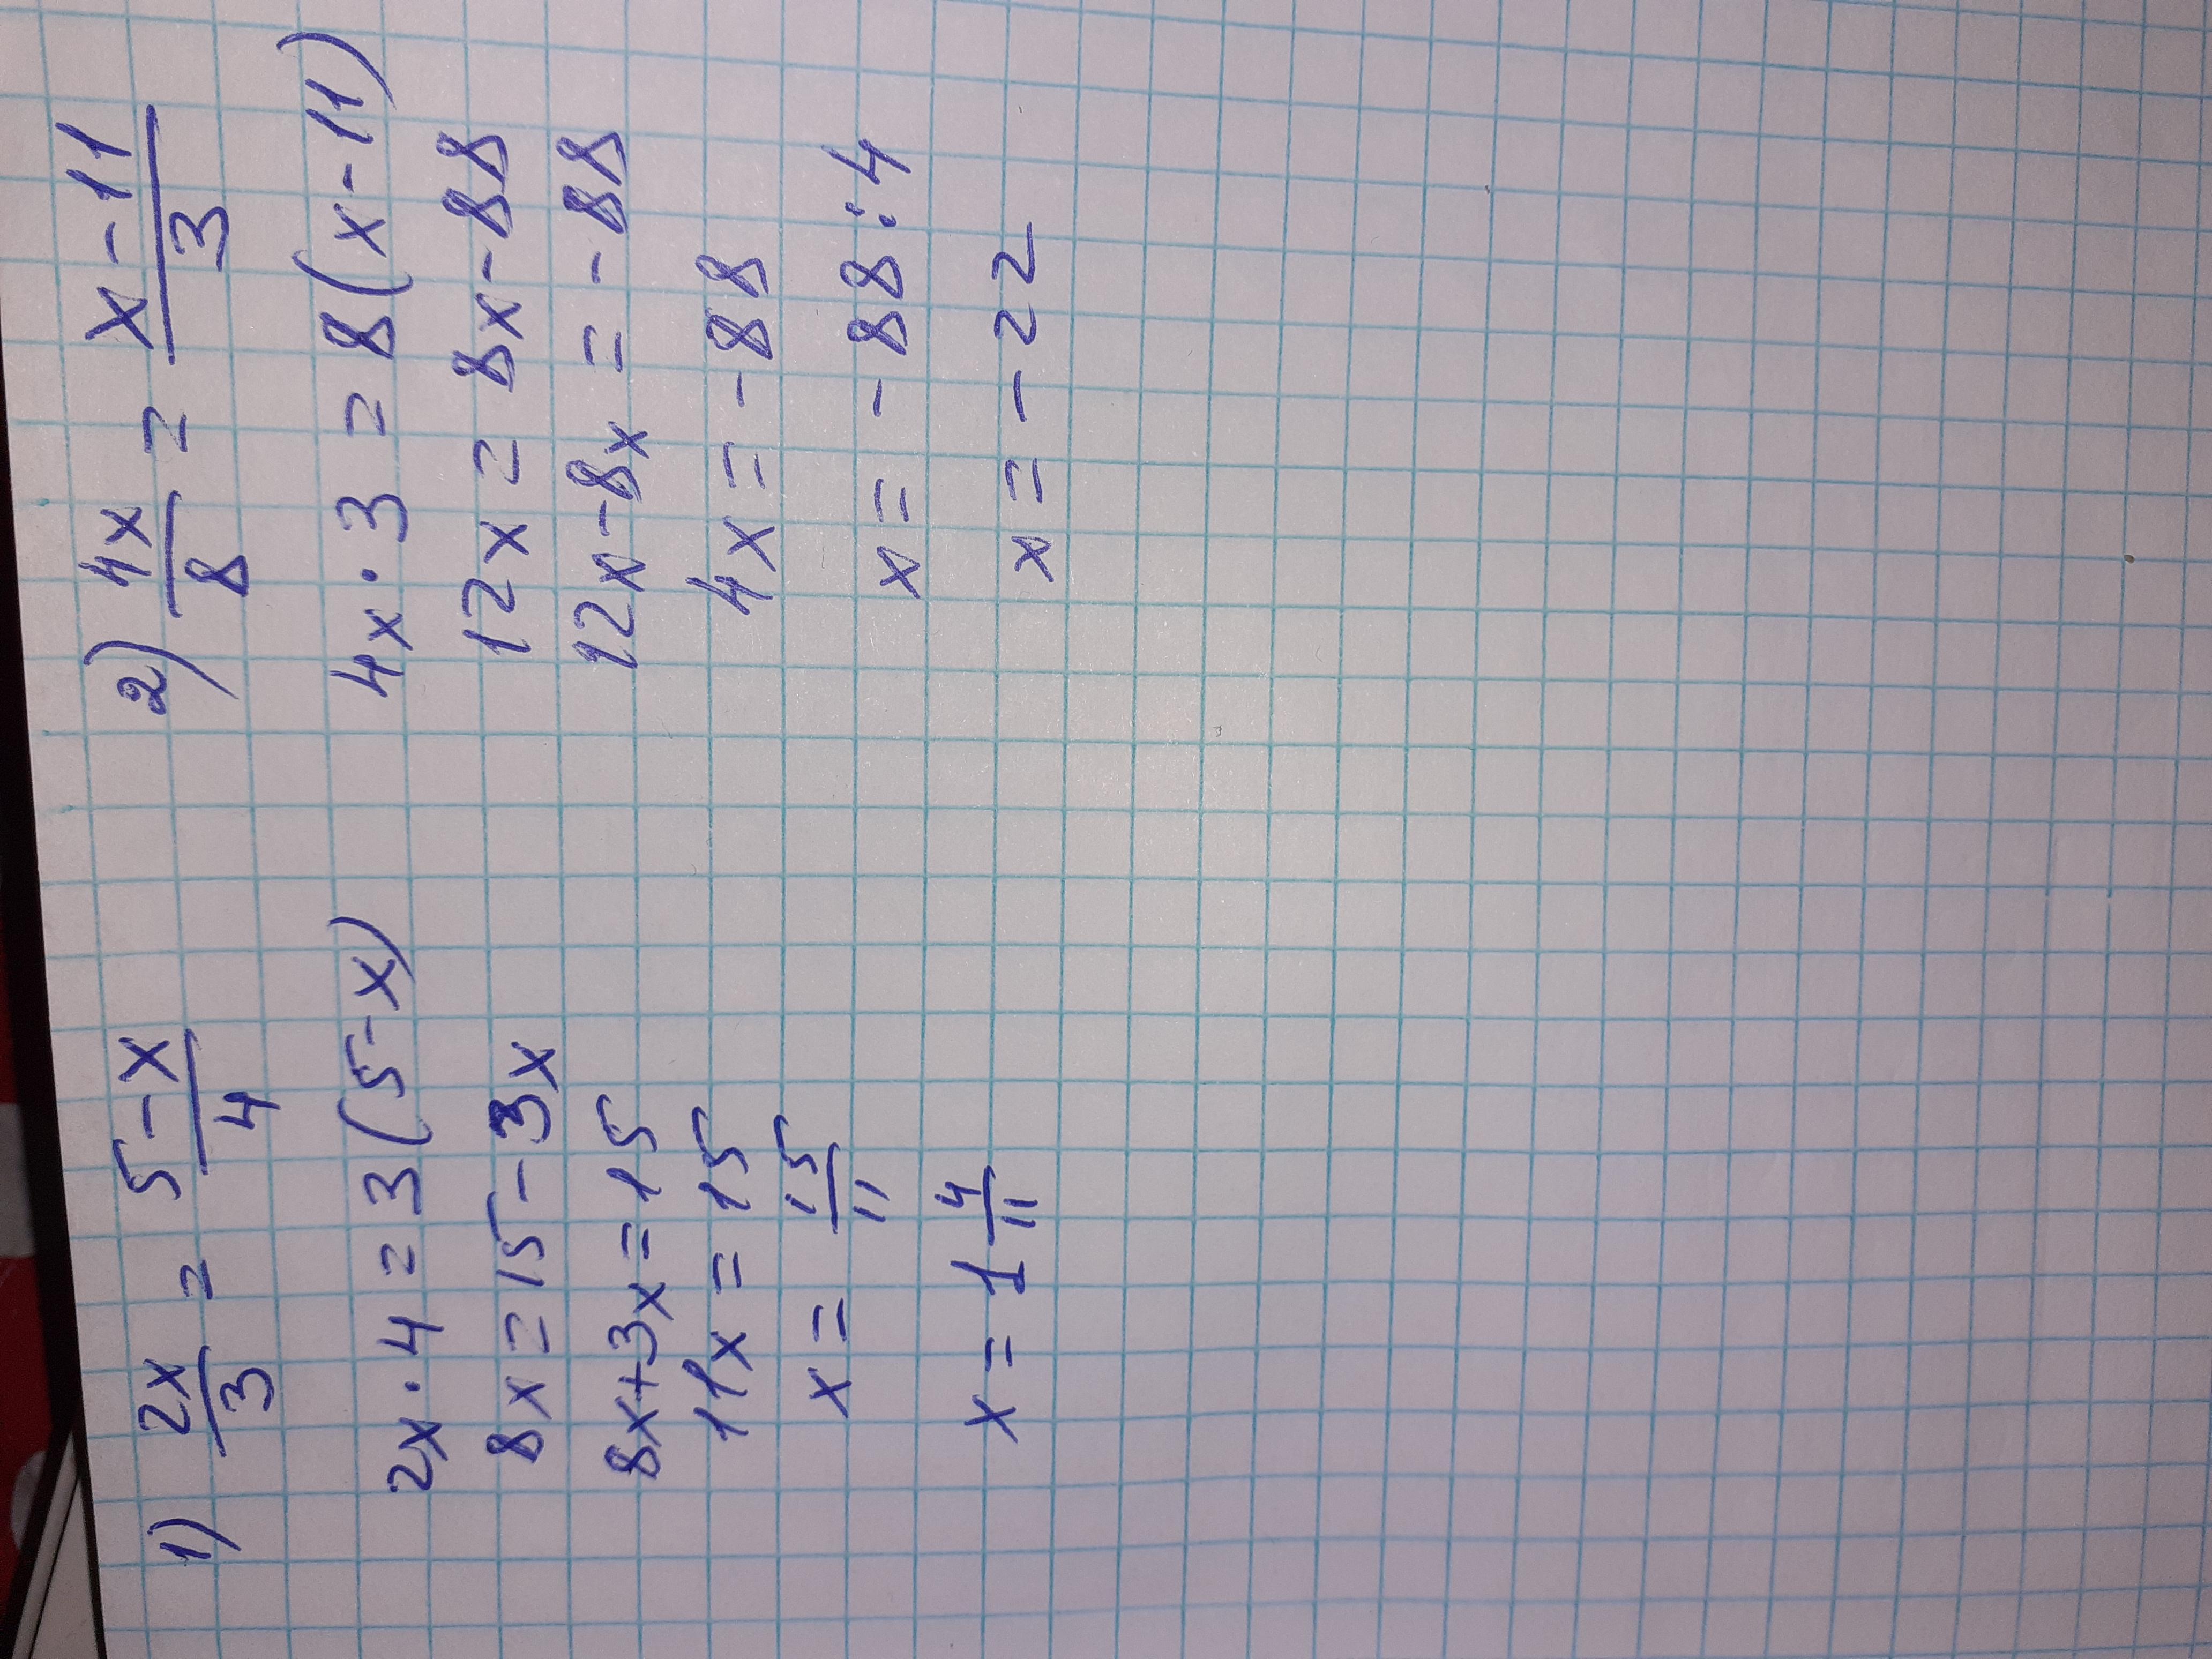 1) 2x/3 = 5-x/4
2x·4=3(5-x)
8x=15-3x
8x+3x=15
11x=15
x= 15/11
x= 1 4/11
2) 4x/8 = x-11/3
4x·3=8(x-11)
12x=8x-88
12x-8x=-88
4x=-88
x=-88:4
x=-22